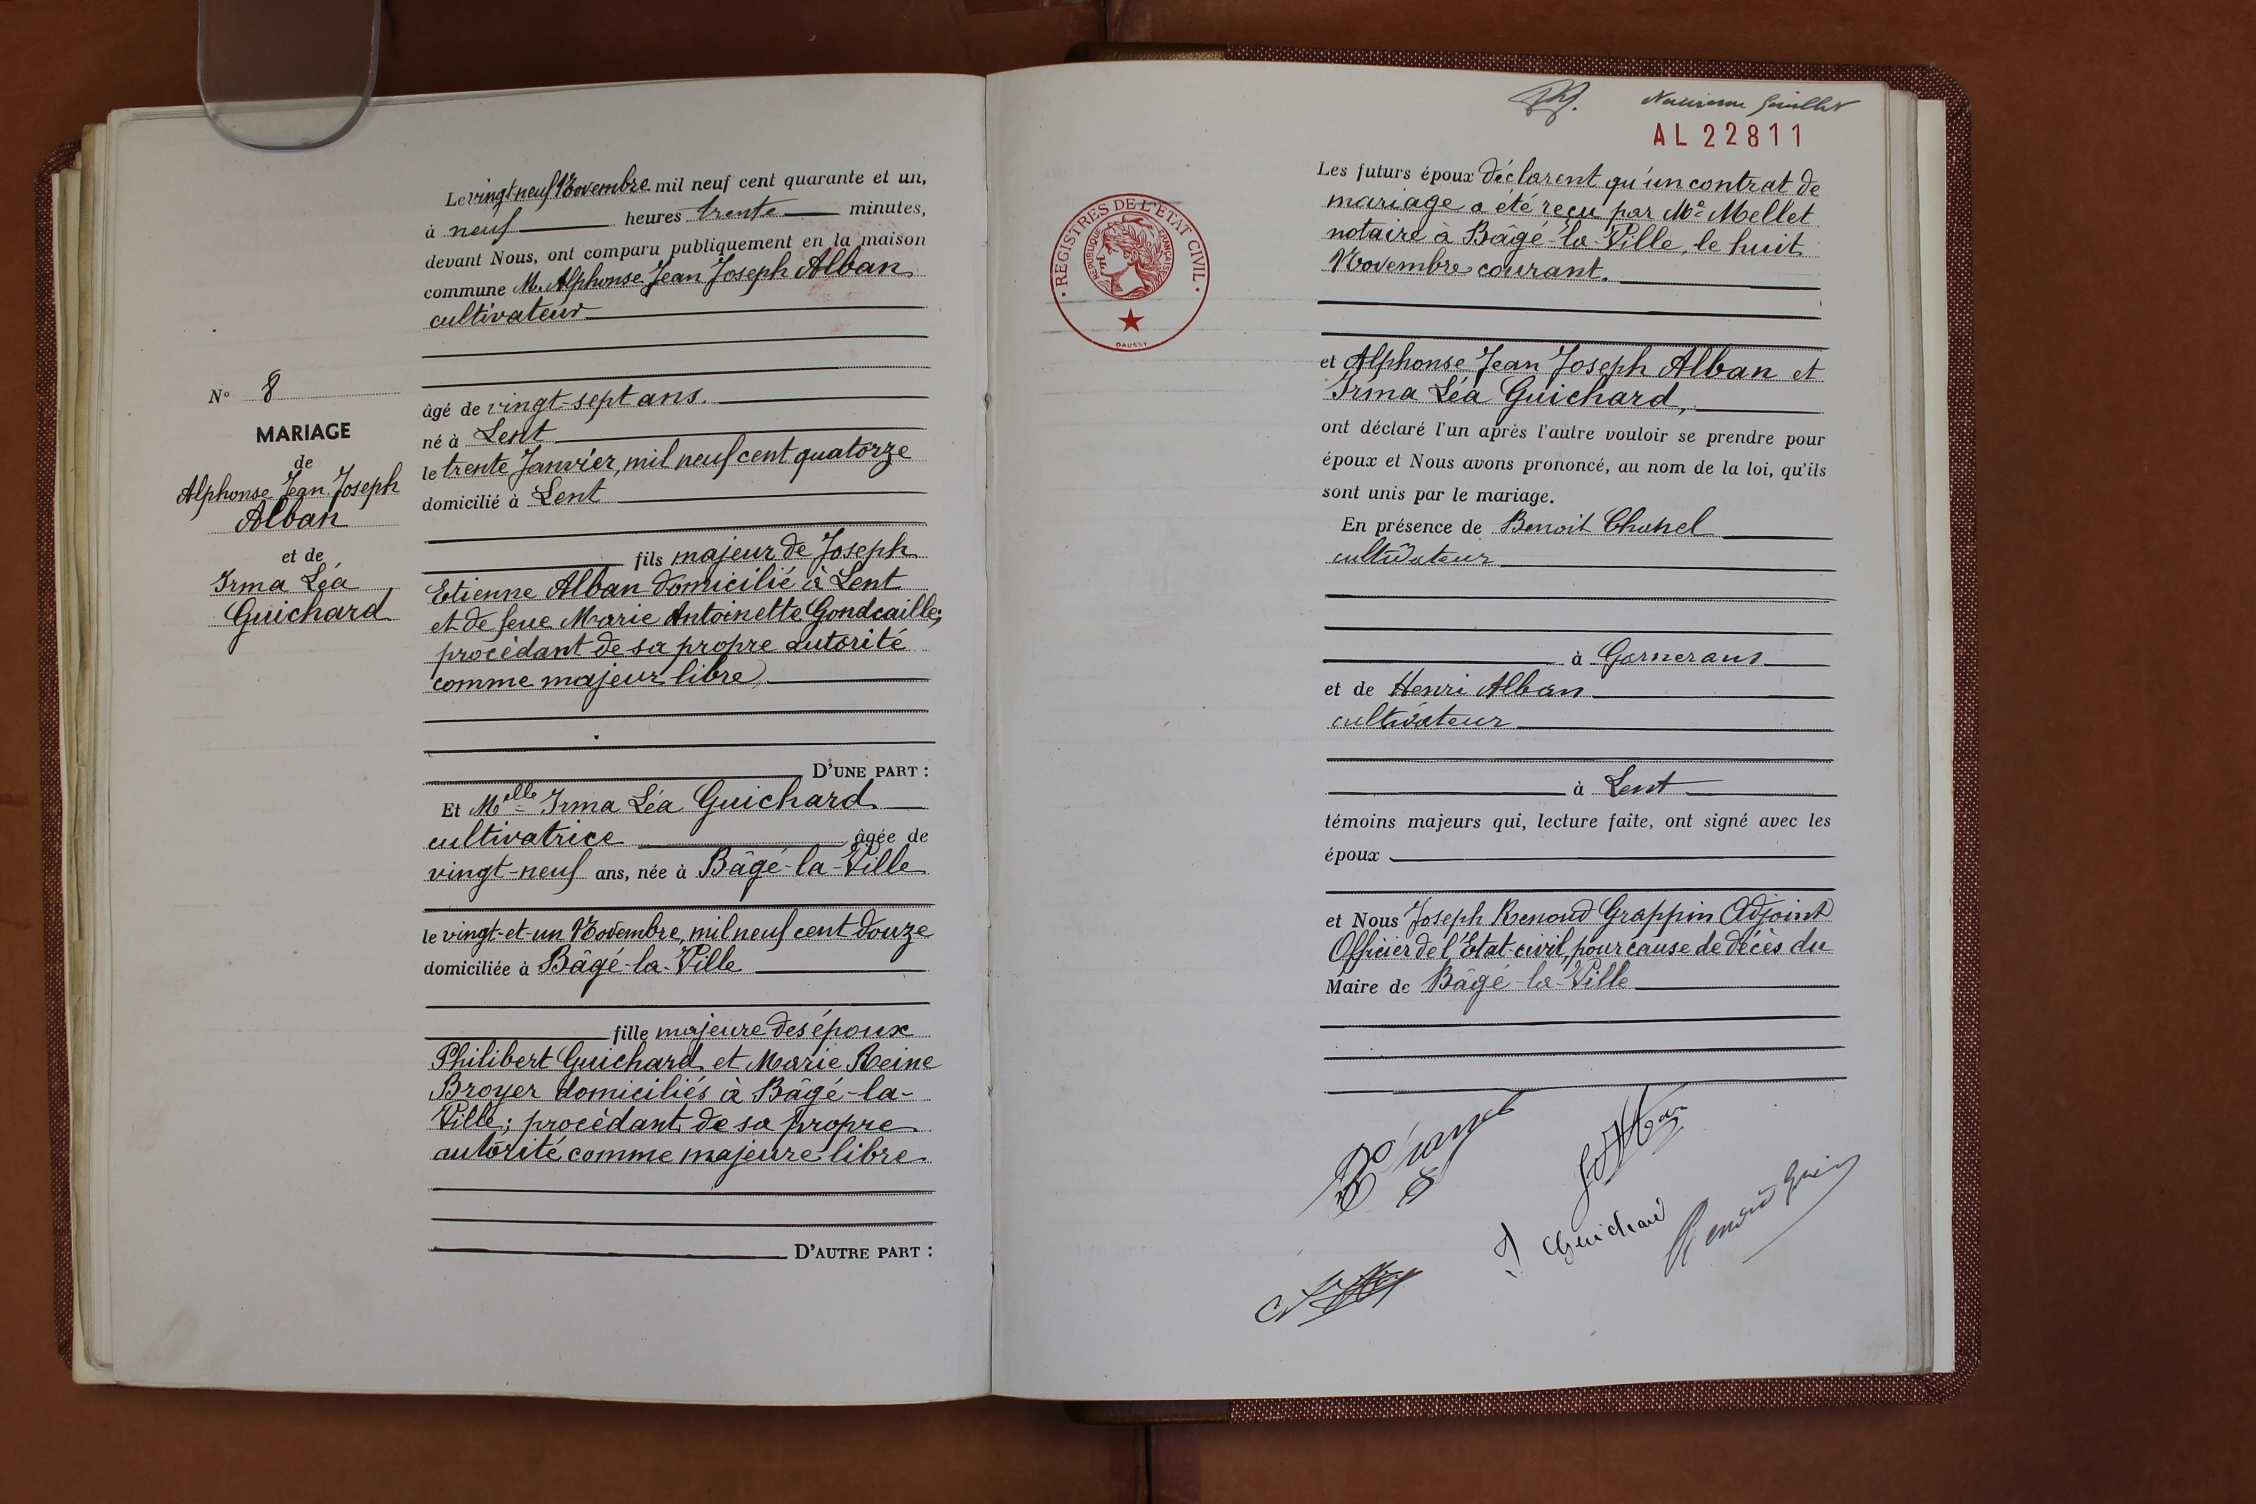 Le vingt neuf Novembre mil neuf cent quarante et un,
à neuf heures trente minutes,
devant Nous, ont comparu publiquement en la maison
commune Mr. Alphonse Jean Joseph Alban
cultivateur
âgé de vingt-sept ans.
né à Lent
le trente Janvier, mil neuf cent quatorze
domicilié à Lent
fils majeur de Joseph
Etienne Alban domicilié à Lent
et de feue Marie Antoinette Gondcaille;
procédant de sa propre autorité
comme majeur libre
D'UNE PART :
Et Melle Irma Léa Guichard
cultivatrice âgée de
vingt-neuf ans, née à Bâgé-la-Ville
le vingt-et-un Novembre, mil neuf cent douze
domiciliée à Bâgé-la-Ville
fille majeure des époux
Philibert Guichard et Marie Reine
Broyer domiciliés à Bâgé-la-
Ville; procédant de sa propre
autorité comme majeure libre
D'AUTRE PART :
No 8
MARIAGE
de
Alphonse Jean Joseph
Alban
et de
Irma Léa
Guichard
AL 22811
REGISTRES DE L'ÉTAT CIVIL
RÉPUBLIQUE FRANÇAISE
DAUSSY
Les futurs époux déclarent qu'un contrat de
mariage a été reçu par Me Mellet
notaire à Bâgé-la-Ville, le huit
Novembre courant.
et Alphonse Jean Joseph Alban et
Irma Léa Guichard,
ont déclaré l'un après l'autre vouloir se prendre pour
époux et Nous avons prononcé, au nom de la loi, qu'ils
sont unis par le mariage.
En présence de Benoit Chanel
cultivateur
à Garnerans
et de Henri Alban
cultivateur
à Lent
témoins majeurs qui, lecture faite, ont signé avec les
époux
et Nous Joseph Renoud Grappin Adjoint
Officier de l'Etat-civil, pour cause de décès du
Maire de Bâgé-la-Ville
Guichard